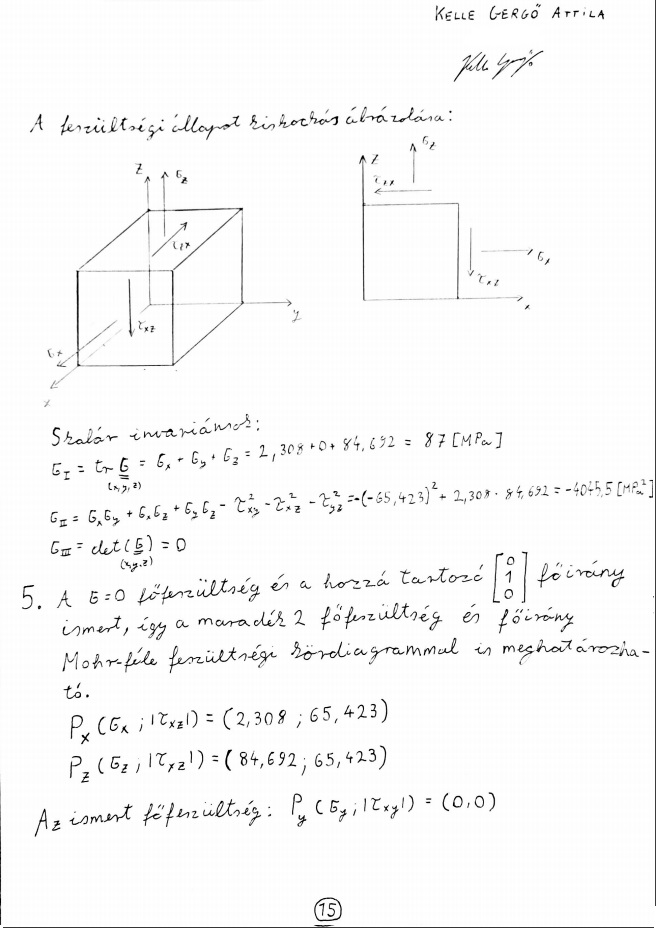 KELLE GERGŐ ATTILA
A feszültségi állapot kiskockás ábrázolása:
z σz
τzx
τxz
σx
x
y
z σz
τzx
σx
τxz
x
Skalár invariánsok:
σI = tr σ = σx + σy + σz = 2,308+0+84,692 = 87 [MPa]
(x,y,z)
σII = σxσy + σxσz + σyσz - τ²xy - τ²xz - τ²yz = -(-65,423)² + 2,308 · 84,692 = -4045,5 [MPa²]
σIII = det(σ) = 0
(x,y,z)
5. A σ=0 főfeszültség és a hozzá tartozó [0 1 0] főirány
ismert, így a maradék 2 főfeszültség és főirány
Mohr-féle feszültségi kördiagrammal is meghatározha-
tó.
Px (σx ; |τxz|) = (2,308 ; 65,423)
Pz (σz ; |τxz|) = (84,692 ; 65,423)
Az ismert főfeszültség: Py (σy ; |τxy|) = (0,0)
15